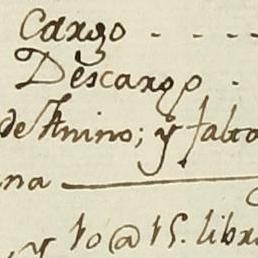 Cargo - - - -
Descargo -
de Anino; y falto
na
y 10 @ 15. libra